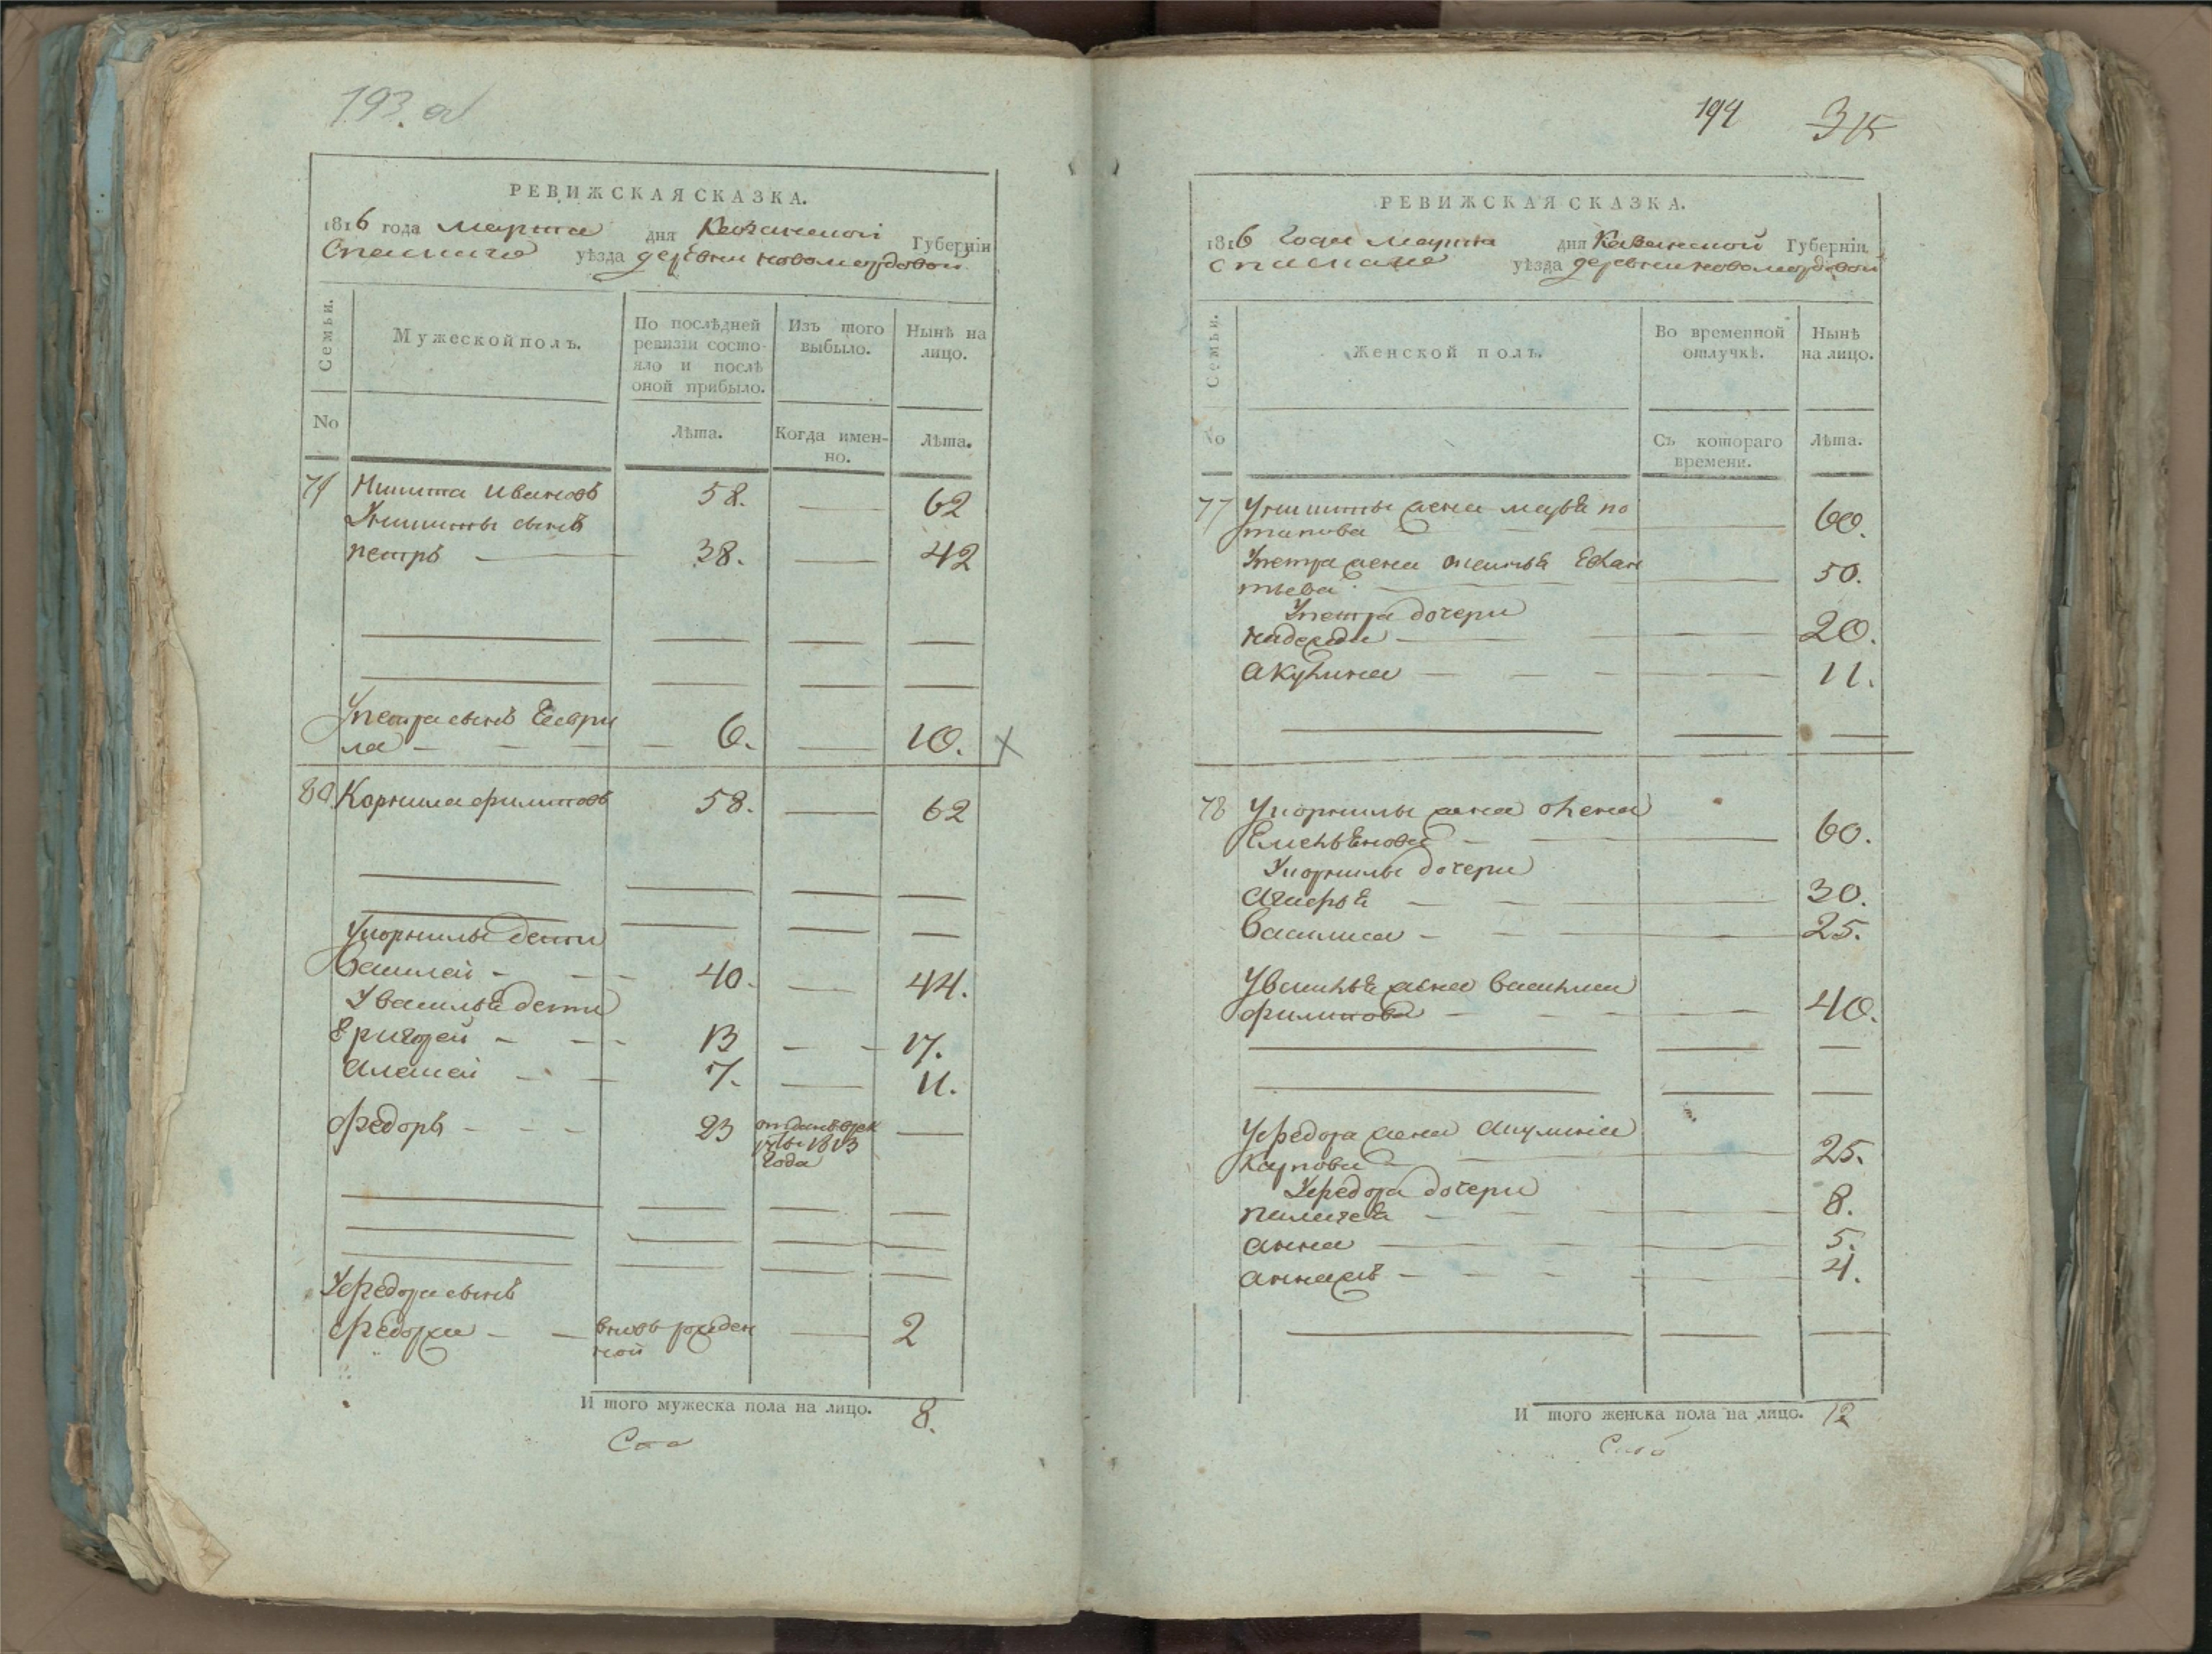 193. об
РЕВИЖСКАЯ СКАЗКА.
1816 года марта дня Казанской Губерніи
Спаскаго уѣзда деревни новомордовой
Семьи.
Мужеской полъ.
По послѣдней ревизіи состояло и послѣ оной прибыло.
Изъ того выбыло.
Нынѣ на лицо.
No
Лѣта.
Когда именно.
Лѣта.
Никита Ивановъ 58. 62
Уникиты сынъ
петръ 38. 42
Упетра сынъ Гаври
ла 6. 10.
80 Корнила филиповъ 58. 62
Укорнилы дети
Василей 40. 44.
Увасилья дети
Григорей 13 17.
Алексей 7. 11.
Федоръ 23 отданъ врек
руты 1813
года
Уфедора сынъ
Федоръ вновь рожден
ной 2
И того мужеска пола на лицо. 8.
194 315
РЕВИЖСКАЯ СКАЗКА.
1816 Года марта дня Казанской Губерніи
Спаскаго уѣзда деревни новомордовой
Семьи.
Женской полъ.
Во временной отлучкѣ.
Нынѣ на лицо.
No
Съ котораго времени.
Лѣта.
77 Уникиты жена марья по
тапова 60.
Упетра жена
тьева 50.
Упетра дочери
надежда 20.
акулина 11.
78 Укорнилы жена олена
Емельянова 60.
Укорнилы дочери
30.
Василиса 25.
Увасилья жена Василиса
филипова 40.
Уфедора жена акулина
Карпова 25.
Уфедора дочери
пелагея 8.
анна 5.
4.
И того женска пола на лицо. 12